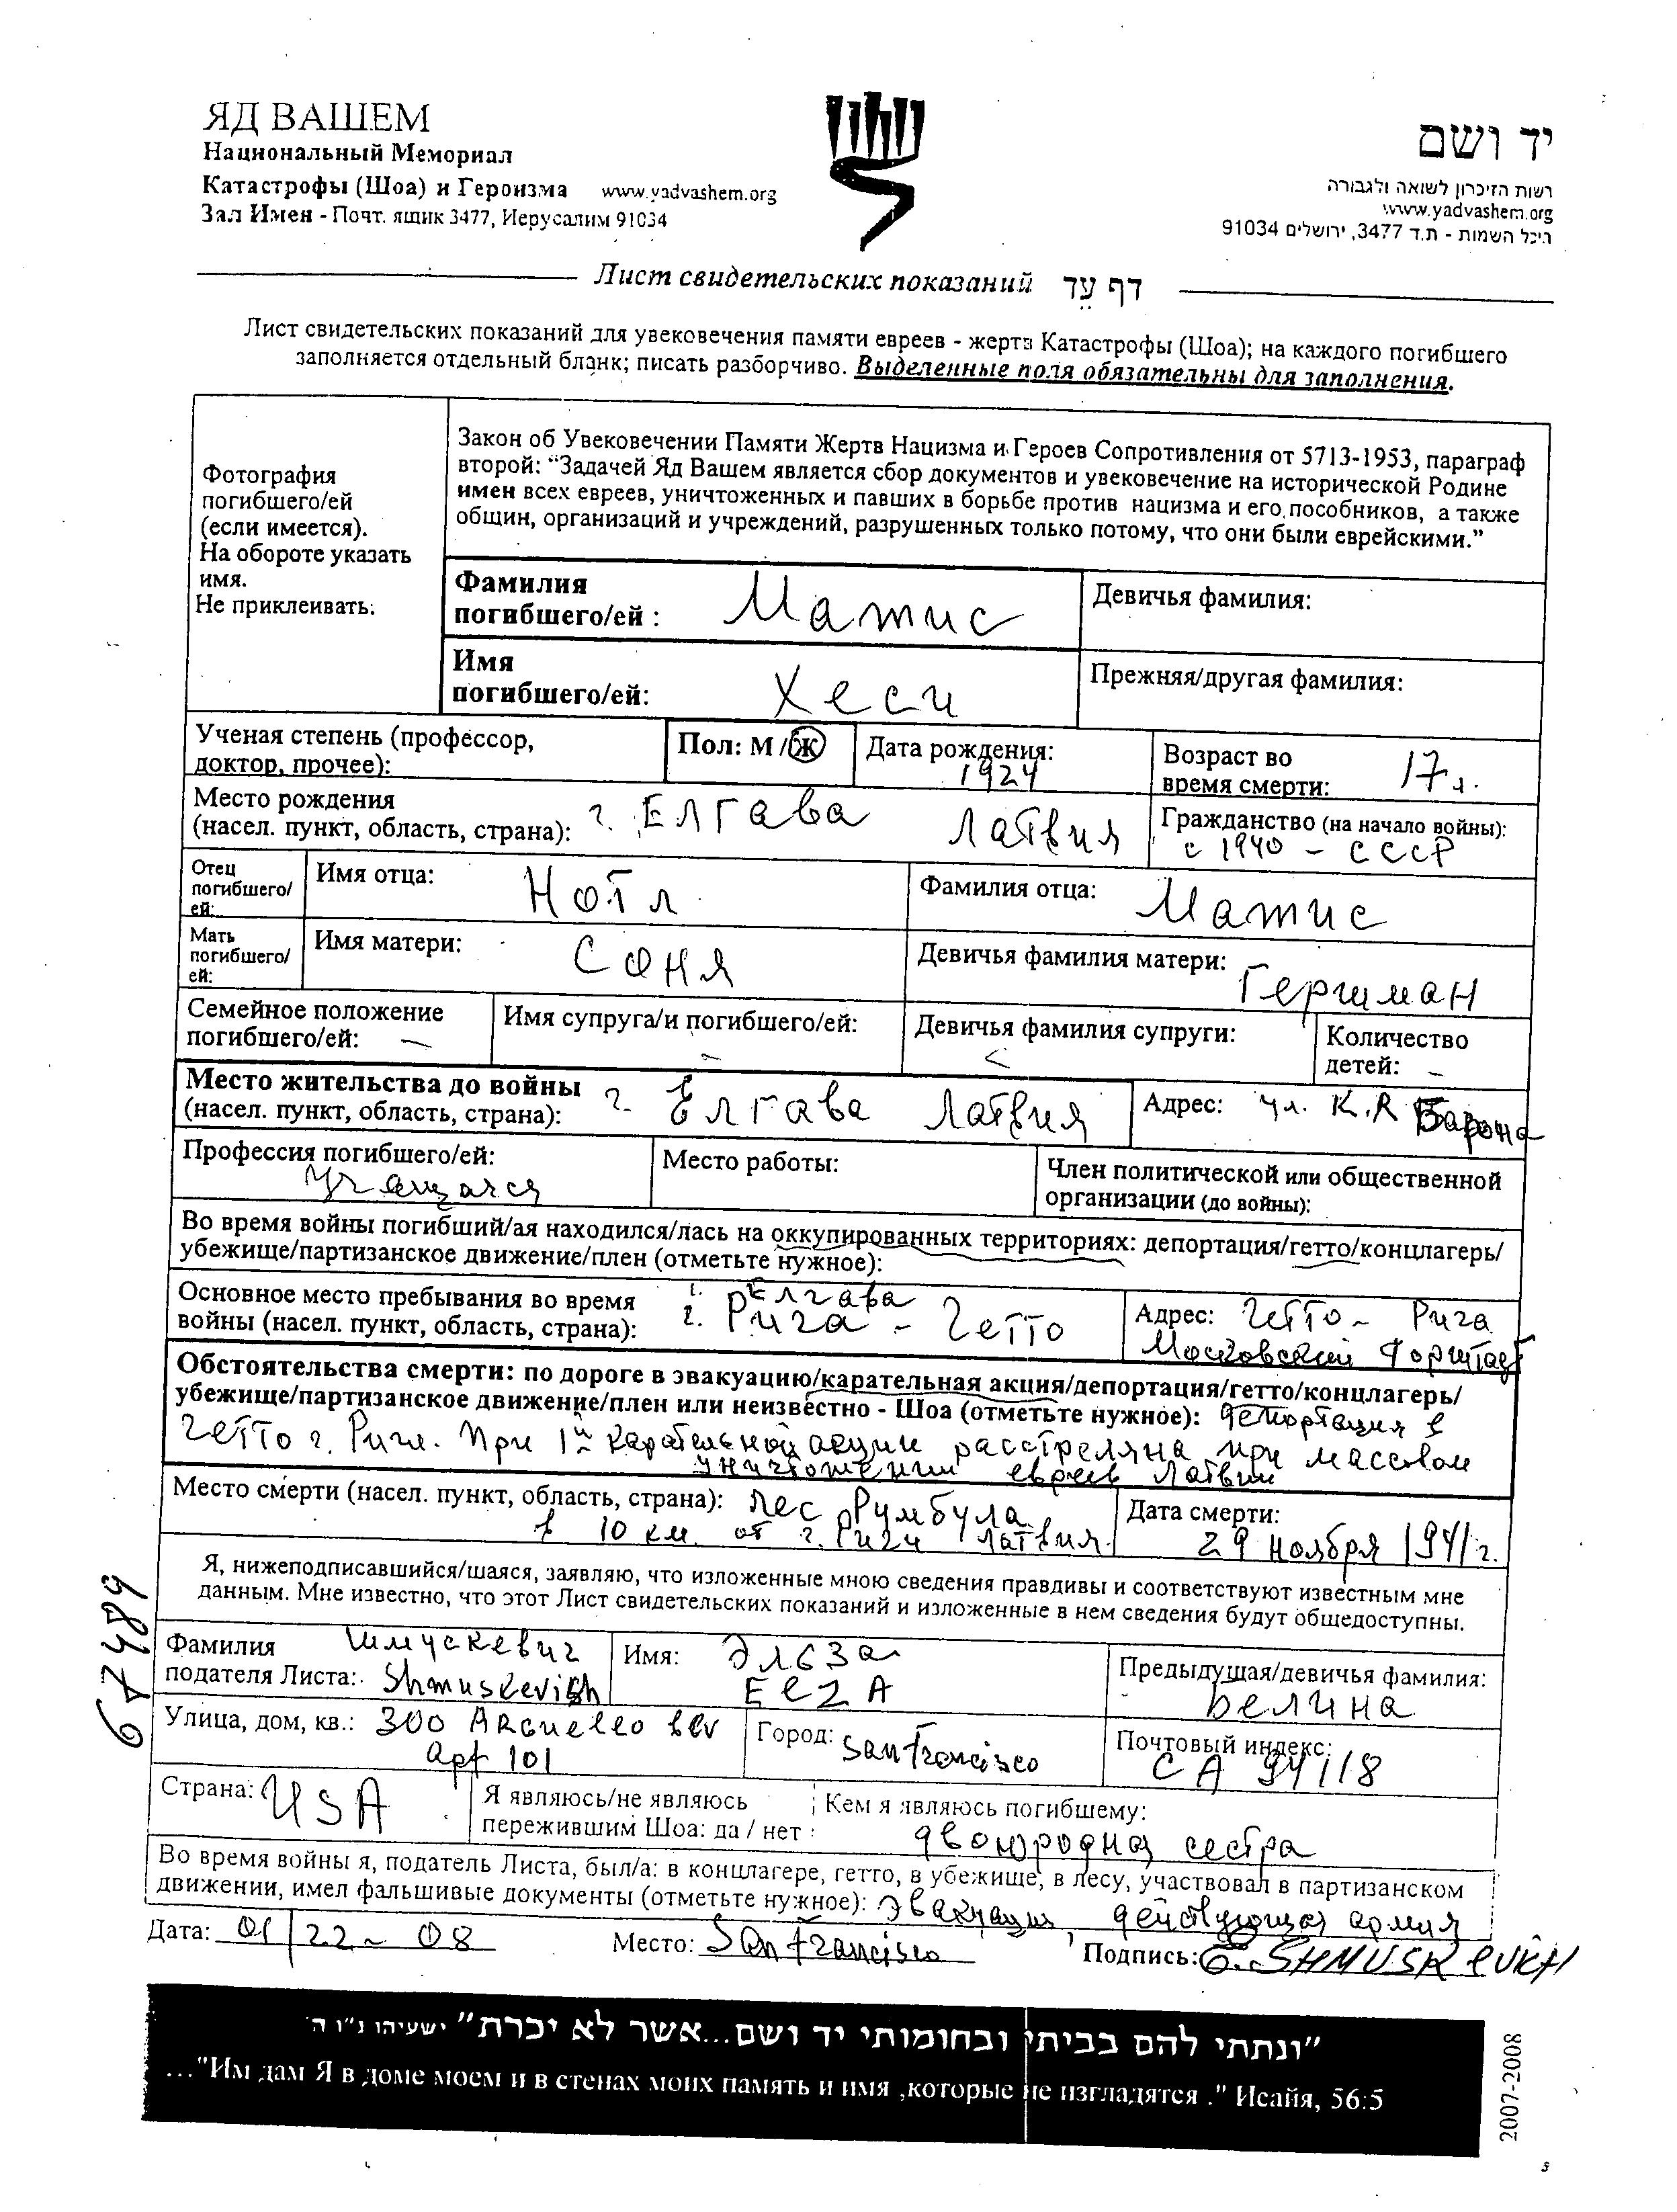 ЯД ВАШЕМ
Национальный Мемориал
Катастрофы (Шоа) и Героизма www.yadvashem.org
Зал Имен - Почт. ящик 3477, Иерусалим 91034
יד ושם
רשות הזיכרון לשואה ולגבורה
www.yadvashem.org
היכל השמות - ת.ד 3477, ירושלים 91034
Лист свидетельских показаний דף עֵד
Лист свидетельских показаний для увековечения памяти евреев - жертв Катастрофы (Шоа); на каждого погибшего
заполняется отдельный бланк; писать разборчиво. Выделенные поля обязательны для заполнения.
Фотография
погибшего/ей
(если имеется).
На обороте указать
имя.
Не приклеивать.
Закон об Увековечении Памяти Жертв Нацизма и Героев Сопротивления от 5713-1953, параграф
второй: “Задачей Яд Вашем является сбор документов и увековечение на исторической Родине
имен всех евреев, уничтоженных и павших в борьбе против нацизма и его пособников, а также
общин, организаций и учреждений, разрушенных только потому, что они были еврейскими.”
Фамилия
погибшего/ей : Матис
Девичья фамилия:
Имя
погибшего/ей: Хеси
Прежняя/другая фамилия:
Ученая степень (профессор,
доктор, прочее):
Пол: М /Ж
Дата рождения:
1924
Возраст во
время смерти: 17 л.
Место рождения
(насел. пункт, область, страна): г. Елгава Латвия
Гражданство (на начало войны):
с 1940 - СССР
Отец
погибшего/
ей:
Имя отца: Нотл
Фамилия отца: Матис
Мать
погибшего/
ей:
Имя матери: Соня
Девичья фамилия матери: Гершман
Семейное положение
погибшего/ей: –
Имя супруга/и погибшего/ей:
–
Девичья фамилия супруги:
Количество
детей: –
Место жительства до войны
(насел. пункт, область, страна): г. Елгава Латвия
Адрес: ул. К. Барона
Профессия погибшего/ей:
Учащаяся
Место работы:
Член политической или общественной
организации (до войны):
Во время войны погибший/ая находился/лась на оккупированных территориях: депортация/гетто/концлагерь/
убежище/партизанское движение/плен (отметьте нужное):
Основное место пребывания во время
войны (насел. пункт, область, страна): г. Елгава
г. Рига - Гетто
Адрес: Гетто - Рига
Московский Форштадт
Обстоятельства смерти: по дороге в эвакуацию/карательная акция/депортация/гетто/концлагерь/
убежище/партизанское движение/плен или неизвестно - Шоа (отметьте нужное): Депортация в
гетто г. Риги. При 1й карательной акции расстреляна при массовом
уничтожении евреев Латвии
Место смерти (насел. пункт, область, страна): лес Румбула
в 10 км. от г. Риги Латвия.
Дата смерти:
29 ноября 1941 г.
Я, нижеподписавшийся/шаяся, заявляю, что изложенные мною сведения правдивы и соответствуют известным мне
данным. Мне известно, что этот Лист свидетельских показаний и изложенные в нем сведения будут общедоступны.
67489
Фамилия Шмускевич
подателя Листа: Shmuskevich
Имя: Эльза
Elza
Предыдущая/девичья фамилия:
Белина
Улица, дом, кв.: 300 Arguello blv
apt 101
Город: San Francisco
Почтовый индекс:
CA 94118
Страна: USA
Я являюсь/не являюсь
пережившим Шоа: да / нет
Кем я являюсь погибшему:
двоюродная сестра
Во время войны я, податель Листа, был/а: в концлагере, гетто, в убежище, в лесу, участвовал в партизанском
движении, имел фальшивые документы (отметьте нужное): эвакуация, действующая армия
Дата: 01/22-08 Место: San Francisco Подпись: E. SHMUSKEVICH
“ונתתי להם בביתי ובחומותי יד ושם...אשר לא יכרת” ישעיהו נ"ו ה'
..."Им дам Я в доме моем и в стенах моих память и имя ,которые не изгладятся ." Исайя, 56:5
2007-2008